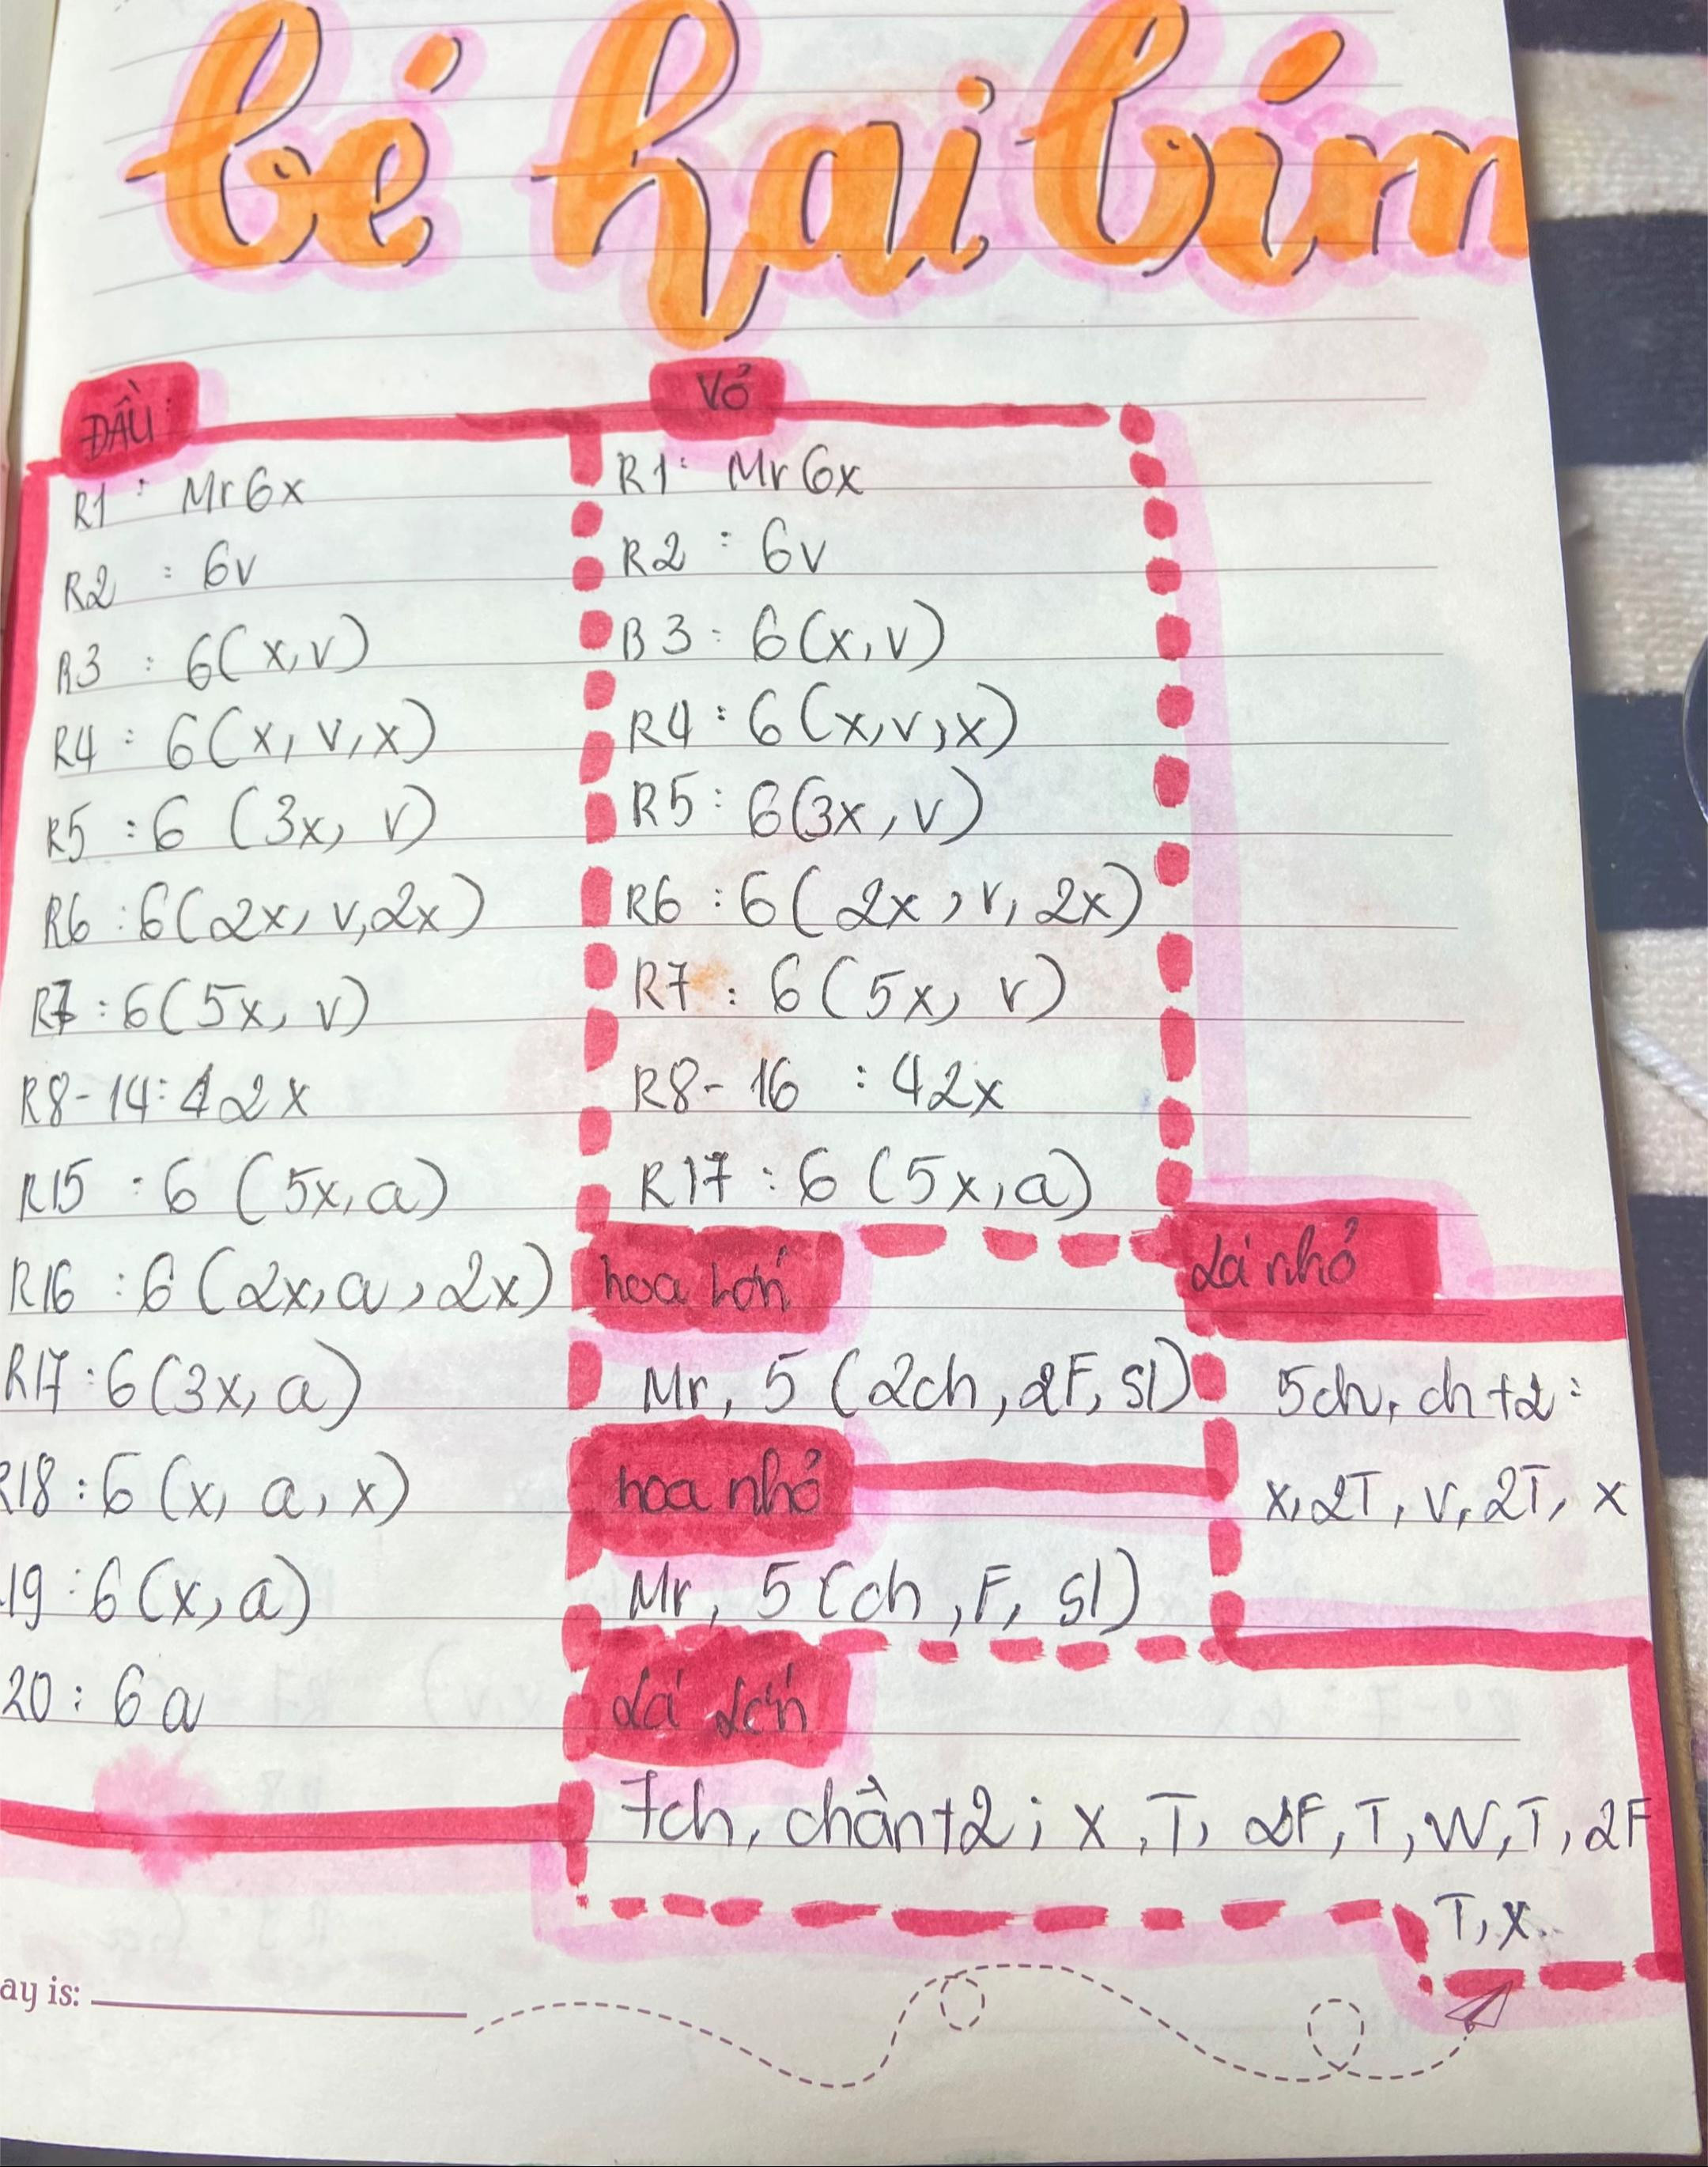 bé hai bím
ĐẦU:
R1 : Mr 6x
R2 : 6v
R3 : 6(x,v)
R4 : 6(x, v,x)
R5 : 6 (3x, v)
R6 : 6(2x, v,2x)
R7 : 6(5x, v)
R8-14: 42x
R15 : 6 (5x,a)
R16 : 6 (2x,a,2x)
R17 : 6(3x, a)
R18 : 6 (x, a, x)
19 : 6(x, a)
20 : 6a
VỎ
R1: Mr 6x
R2 : 6v
R3 : 6(x,v)
R4 : 6(x,v,x)
R5 : 6(3x,v)
R6 : 6(2x,v, 2x)
R7 : 6(5x, v)
R8- 16 : 42x
R17 : 6 (5x,a)
hoa lớn
Mr, 5 (2ch, 2F, sl)
hoa nhỏ
Mr, 5 (ch, F, sl)
lá nhỏ
5ch, ch+2:
x,2T, v, 2T, x
lá lớn
7ch, chân+2; x, T, 2F, T, W, T, 2F
T, x.
ay is: